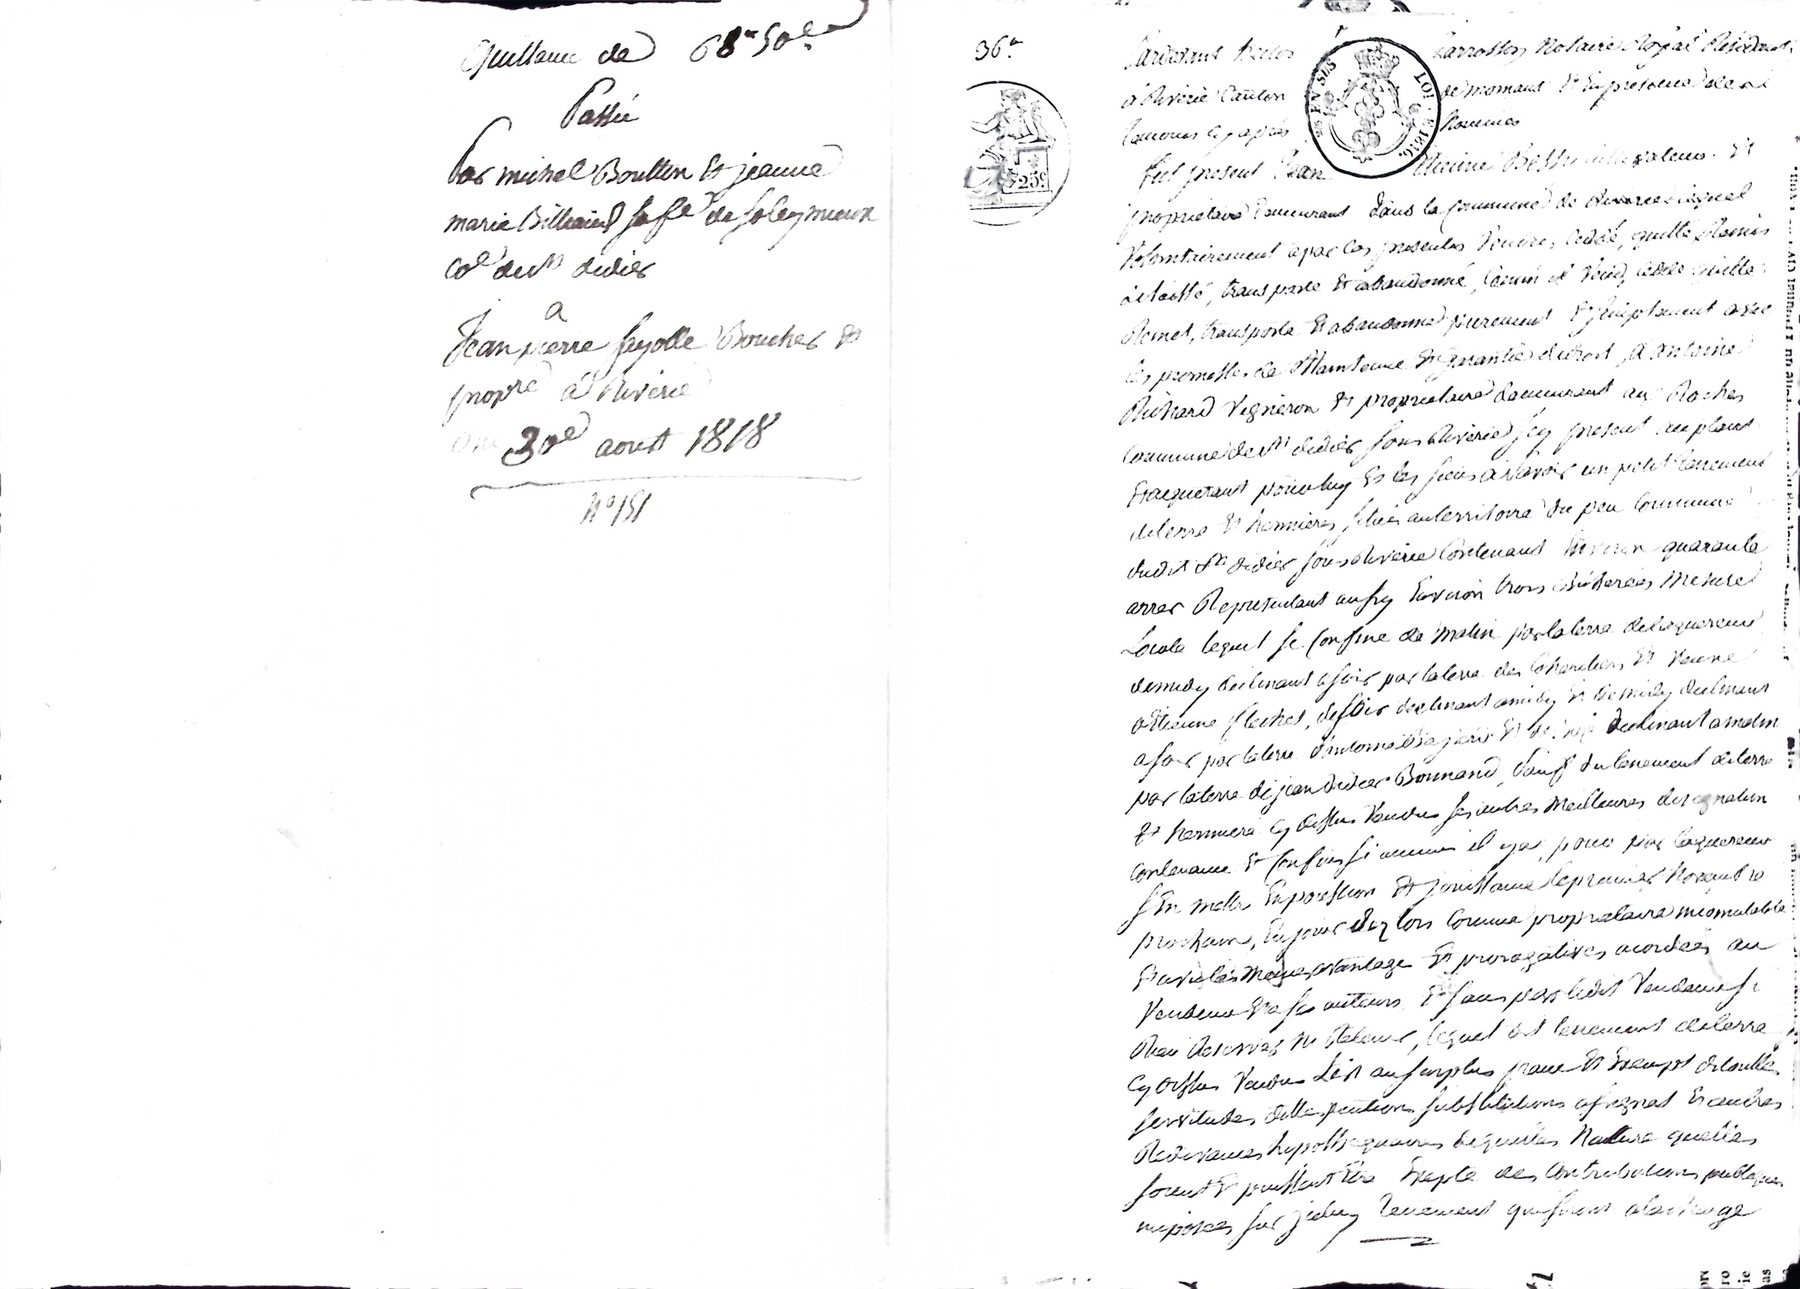 Quittance de 68# 50c
Passée
Par michel Boutton Et jeanne
marie Billiard sa fe de soleymieux
coe de st didier
a
Jean pierre fayolle Boucher Et
propre a Riverie
20e aoust 1818
No 151
36.
25c
LOI 1816.
EN SUS
Pardevant Notaire Royal Residant
a Riverie Canton de mornant Et En presence de
temoins cy apres Nommés
fut present Jean
proprietaire demeurant dans la Commune de Riverie lequel
Volontairement a par les presentes Vendu, cedé, quitté Remis
delaissé, transporté Et abandonné, Comm il Vend, cede quitte
Remet, transporte Et abandonne purement Et simplement avec
les promesses de Maintenue Et garantie de droit, a antoine
Richard Vigneron Et proprietaire demeurant au Rocher
Commune de st didier sous Riverie icy present acceptant
Et acquerant pour luy Et les siens a savoir un petit tenement
de terre Et hermieres, situés au territoire du peu Commune
dudit st didier sous Riverie Contenant Environ quarante
arres Representant aussy Environ trois Bicherées Mesure
Locale lequel se Confine de Matin par la terre de l'acquereur
de midy declinant a soir par la terre des Cohéritiers Et Veuve
Etienne flechet, de soir declinant a midy Et de midy declinant
a soir par la terre d'antoine Et de bize declinant a matin
par la terre de jean didier Bonnand, sauf du tenement de terre
Et hermiere cy dessus Vendu ses autres Meilleures designation
Contenance Et Confins si aucuns il y a, pour par l'acquereur
s'En mettre En possession Et jouissance le premier Novembre
prochain, En jouir dez lors Comme proprietaire incomutable
Et avec les Memes avantage Et prerogatives acordées au
Vendeur Et a ses auteurs Et sans par ledit Vendeur s'i
Rien Reserver Ni Retenir, lequel dit tenement de terre
cy dessus Vendu Est au surplus franc Et Exempt de toutes
servitudes dettes pentions substitutions assignat Et autres
Redevances hypothequaires de quelles Nature quelles
soient Et puissent Etre Exepté des Contributions publiques
imposées sur iceluy tenement qui seront a la charge